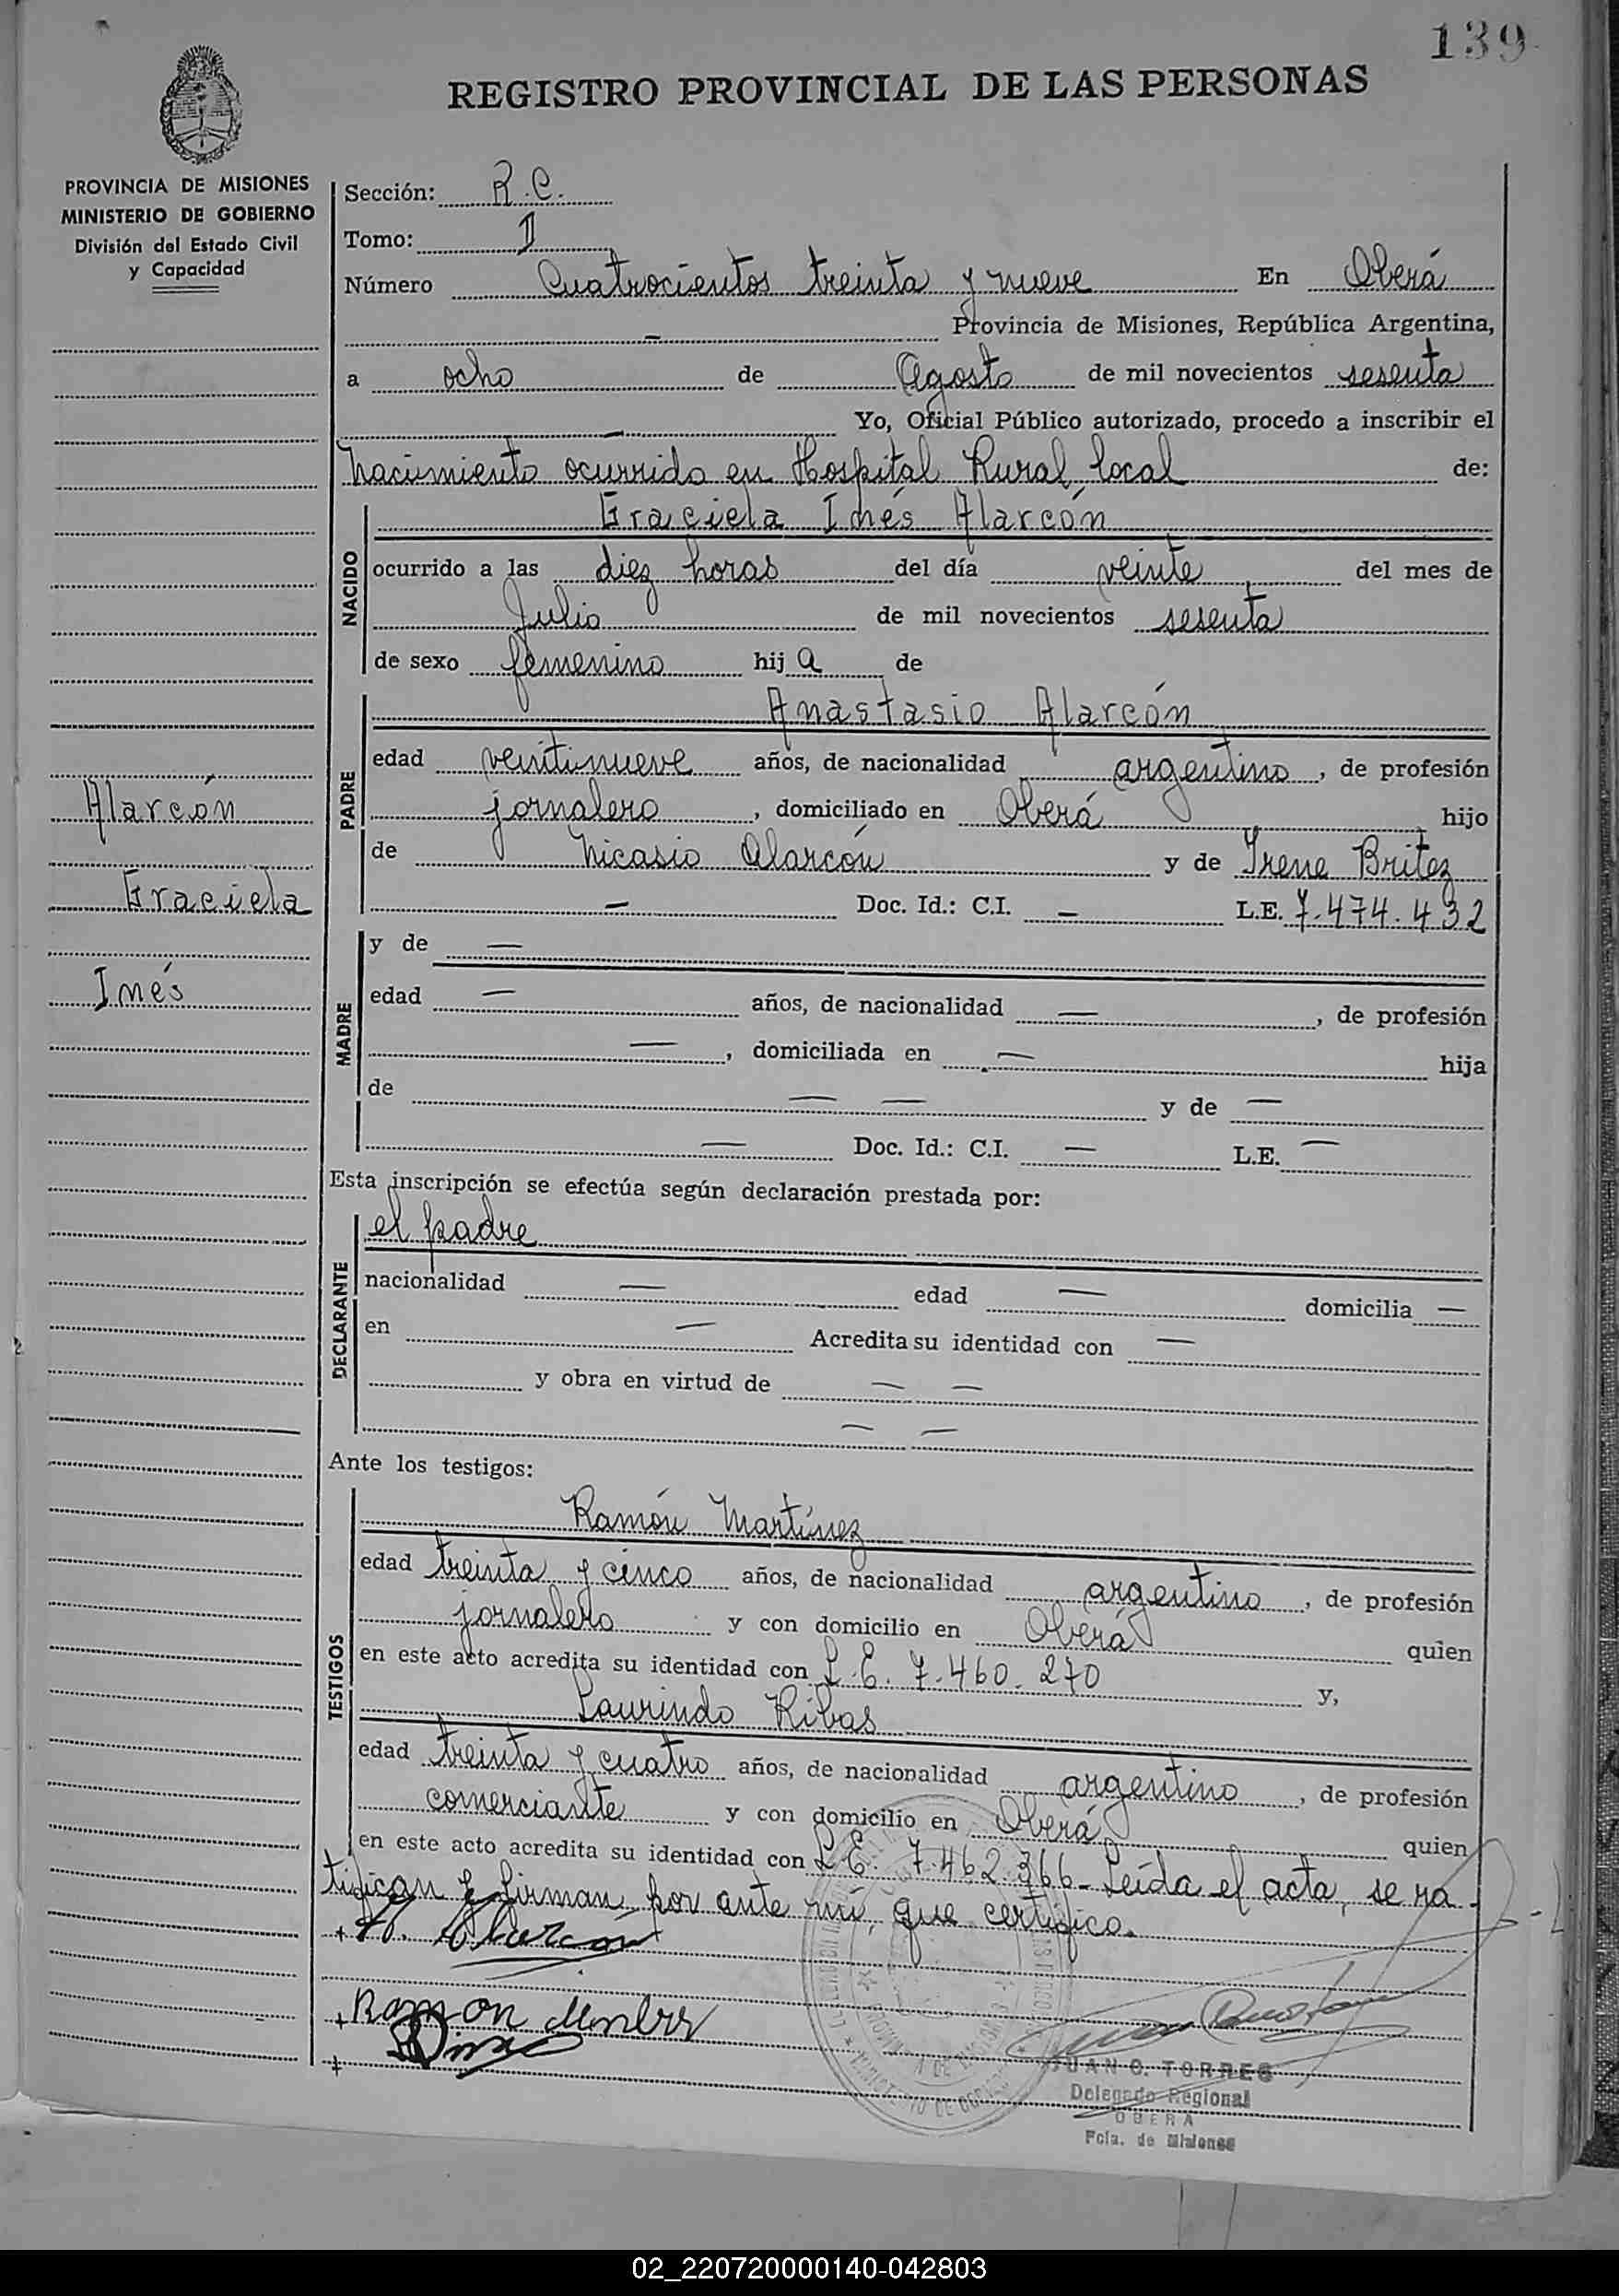 139
REGISTRO PROVINCIAL DE LAS PERSONAS
PROVINCIA DE MISIONES
MINISTERIO DE GOBIERNO
División del Estado Civil
y Capacidad
Sección: R.C.
Tomo: I
Número Cuatrocientos treinta y nueve En Oberá
— Provincia de Misiones, República Argentina,
a ocho de Agosto de mil novecientos sesenta
— Yo, Oficial Público autorizado, procedo a inscribir el
nacimiento ocurrido en Hospital Rural local de:
NACIDO
Graciela Inés Alarcón
ocurrido a las diez horas del día veinte del mes de
Julio de mil novecientos sesenta
de sexo femenino hija de
PADRE
Anastasio Alarcón
edad veintinueve años, de nacionalidad argentino, de profesión
jornalero, domiciliado en Oberá hijo
de Nicasio Alarcón y de Irene Britez
— Doc. Id.: C.I. — L.E. 7.474.432
Alarcón
Graciela
Inés
MADRE
y de —
edad — años, de nacionalidad —, de profesión
—, domiciliada en — hija
de — — y de —
— Doc. Id.: C.I. — L.E. —
Esta inscripción se efectúa según declaración prestada por:
DECLARANTE
el padre
nacionalidad — edad — domicilia —
en — Acredita su identidad con —
y obra en virtud de — —
— —
Ante los testigos:
TESTIGOS
Ramón Martínez
edad treinta y cinco años, de nacionalidad argentino, de profesión
jornalero y con domicilio en Oberá quien
en este acto acredita su identidad con L.E. 7.460.270 y,
Laurindo Ribas
edad treinta y cuatro años, de nacionalidad argentino, de profesión
comerciante y con domicilio en Oberá quien
en este acto acredita su identidad con L.E. 7.462.366 - Leída el acta, se ra-
tifican y firman por ante mí, que certifico.
+ A. Alarcón
+ Ramon
+
JUAN C. TORRES
Delegado Regional
OBERA
Pcia. de Misiones
02_220720000140-042803